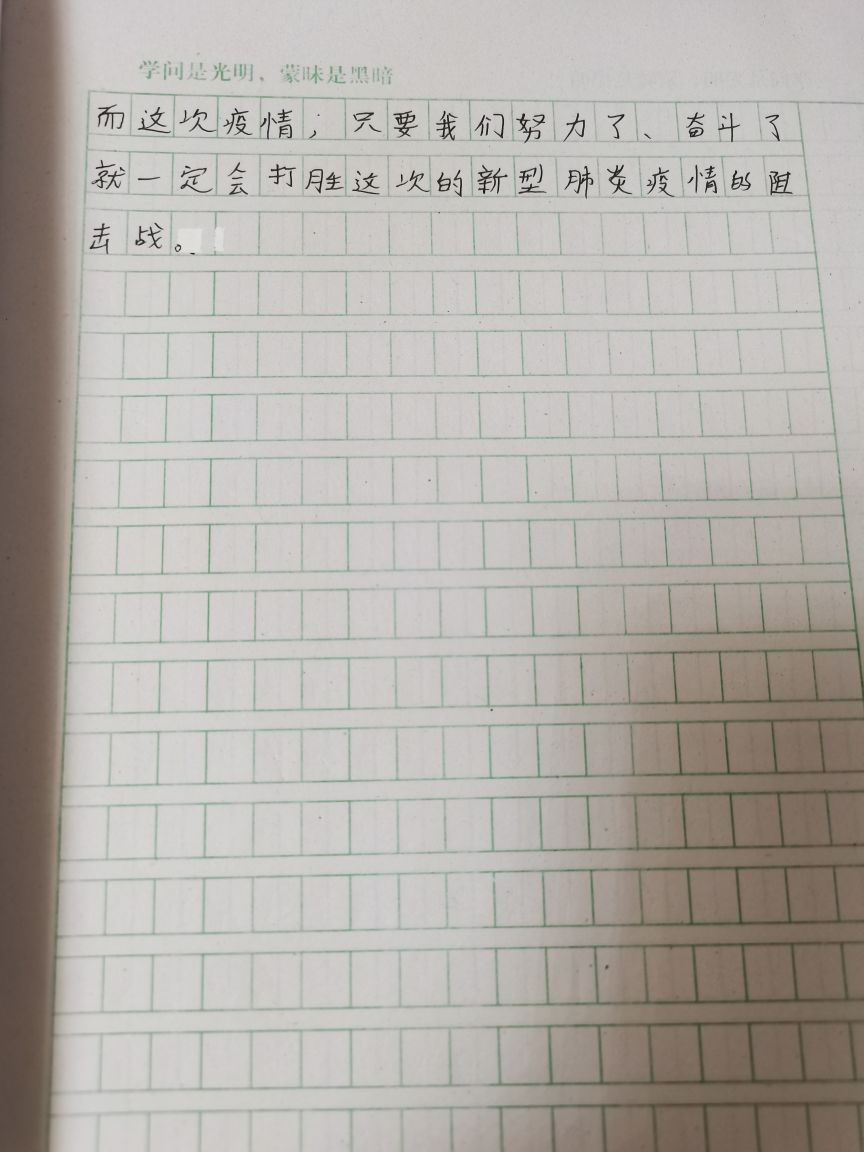 学问是光明、蒙昧是黑暗
而这次疫情；只要我们努力了、奋斗了
就一定会打胜这次的新型肺炎疫情的阻
击战。